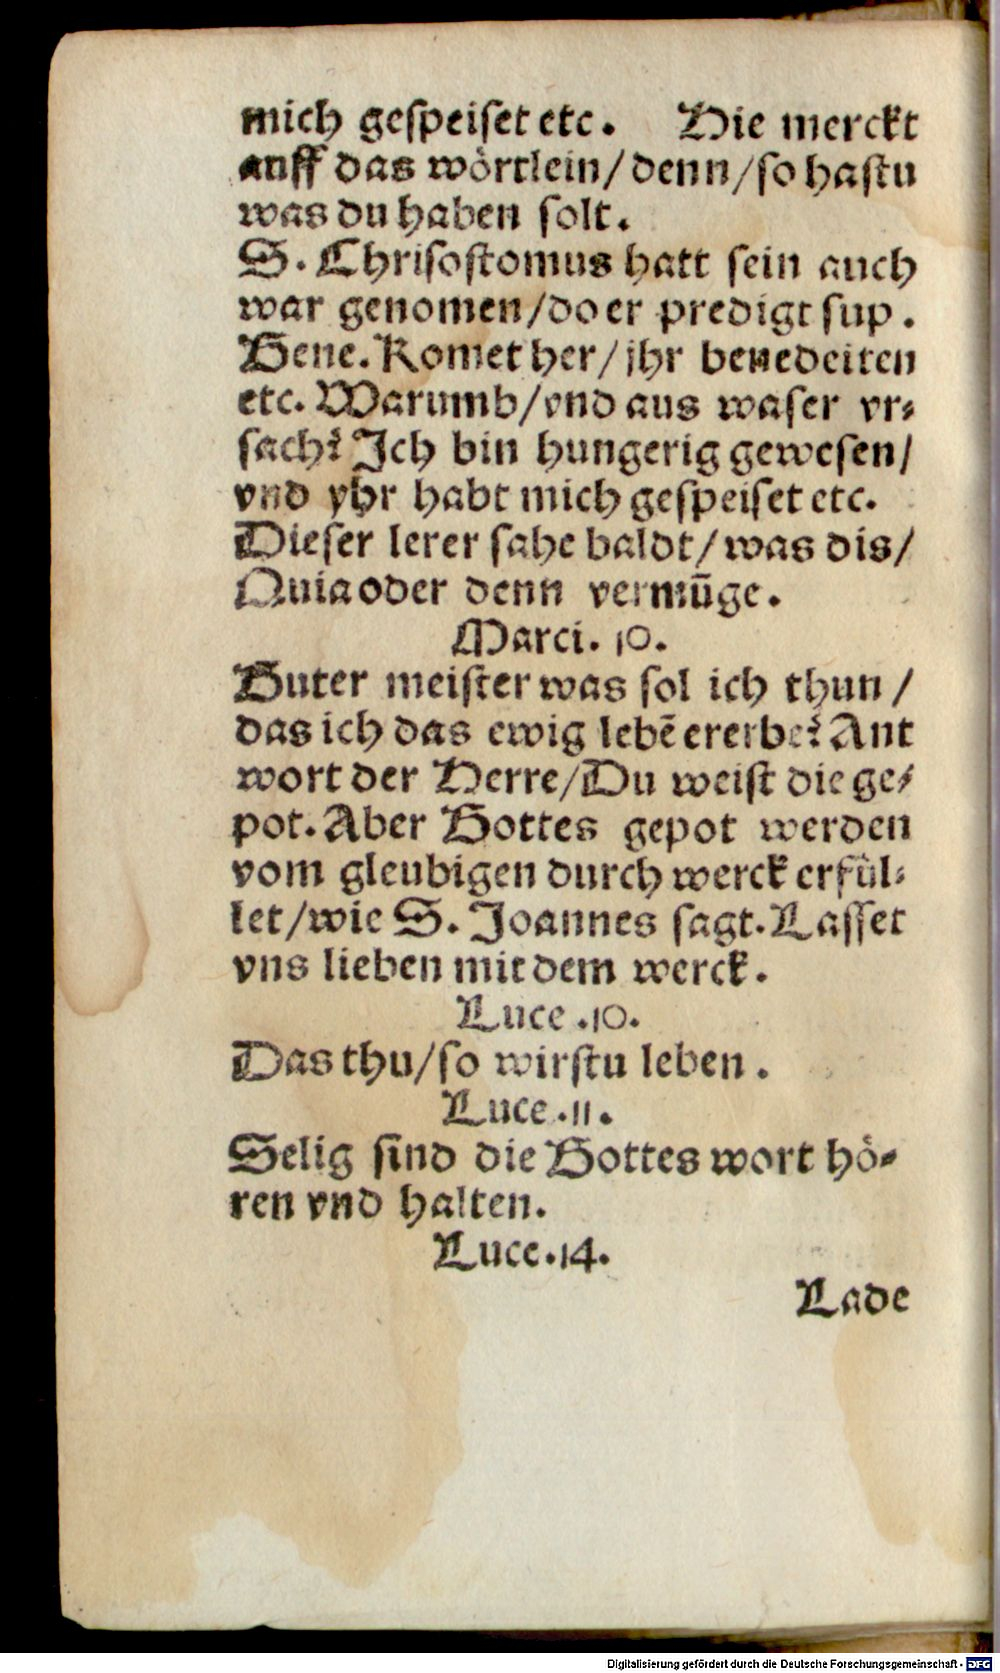 mich gespeiset etc. Hie merckt
auff das wörtlein/denn/so hastu
was du haben solt.
S. Chrisostomus hatt sein auch
war genomen/do er predigt sup.
Gene. Komet her/jhr benedeiten
etc. Warumb/vnd aus waser vr-
sach? Ich bin hungerig gewesen/
vnd yhr habt mich gespeiset etc.
Dieser lerer sahe baldt/was dis/
Quia oder denn vermüge.
Marci. 10.
Guter meister was sol ich thun/
das ich das ewig lebē ererbe? Ant
wort der Herre/Du weist die ge-
pot. Aber Gottes gepot werden
vom gleubigen durch werck erfül-
let/wie S. Joannes sagt. Lasset
vns lieben mit dem werck.
Luce .10.
Das thu/so wirstu leben.
Luce .11.
Selig sind die Gottes wort hö-
ren vnd halten.
Luce .14.
Lade
Digitalisierung gefördert durch die Deutsche Forschungsgemeinschaft - DFG